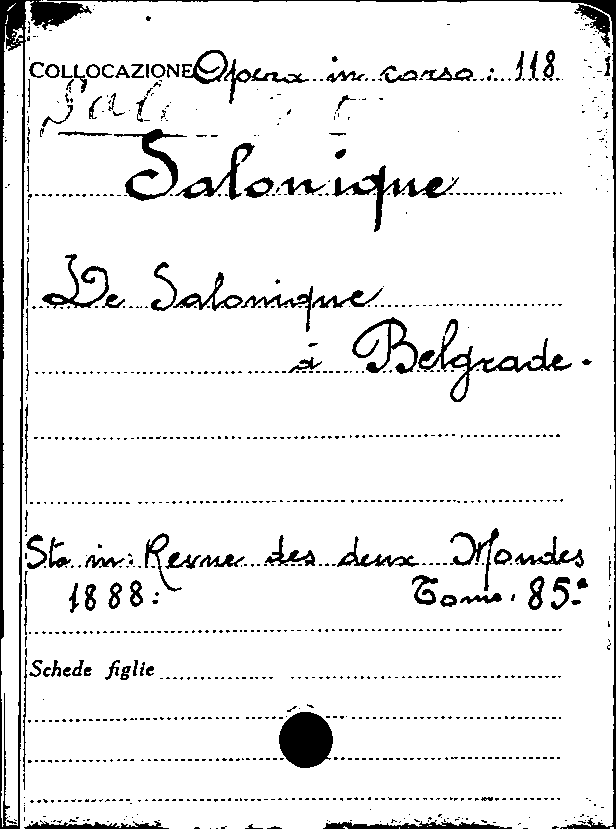 COLLOCAZIONE Opera in corso: 118
Salonique
De Salonique
à Belgrade.
Sta in: Revue des deux Mondes
1888: Tome. 85º
Schede figlie